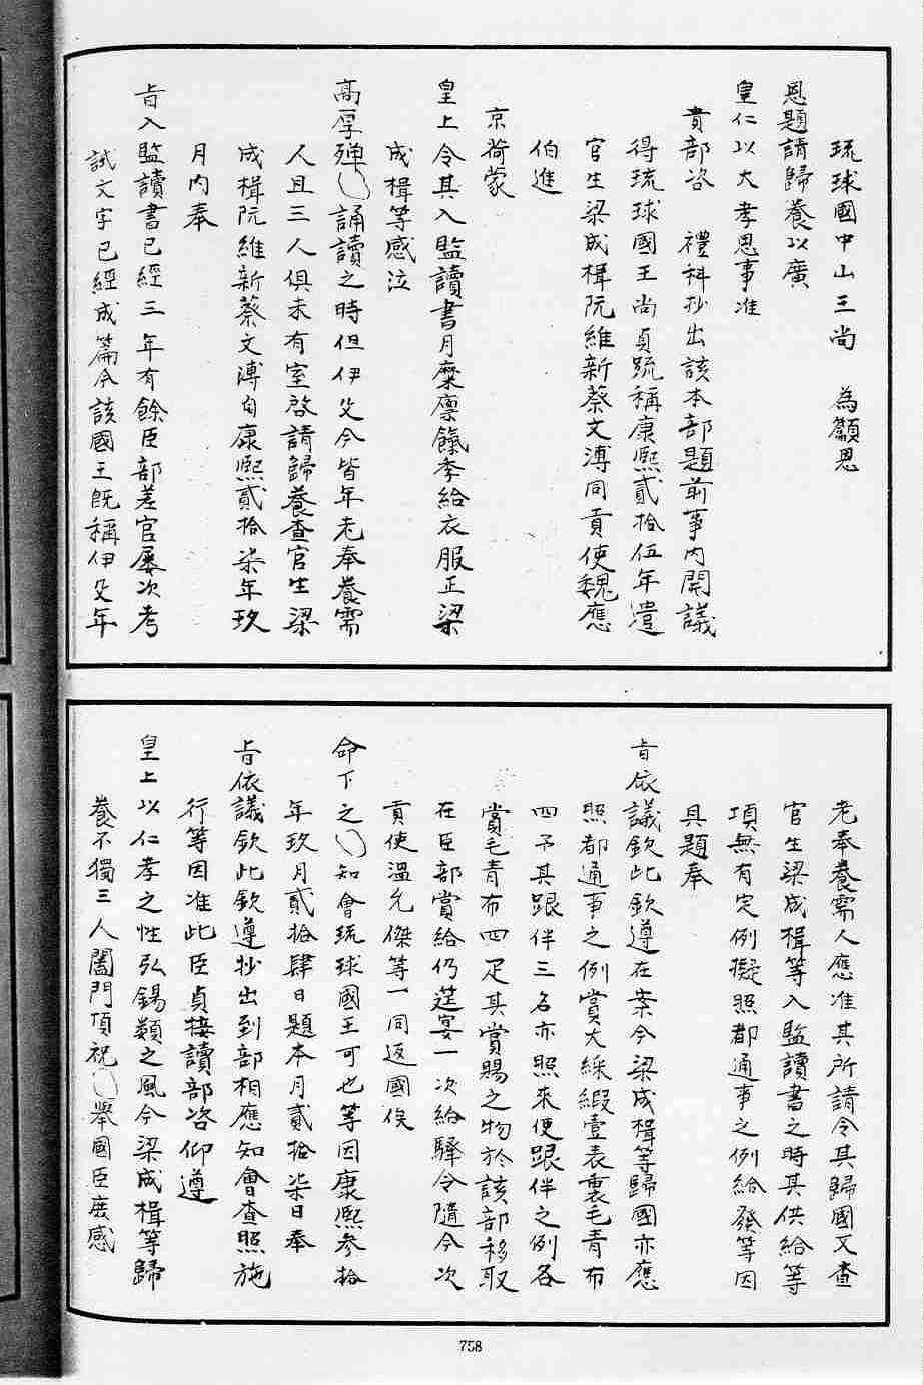 琉球國中山王尚　為籲恩
恩題請歸養以廣
皇仁以大孝思事准
貴部咨　禮科抄出該本部題前事內開議
得琉球國王尚貞䟽稱康熙貳拾伍年遣
官生梁成楫阮維新蔡文溥同貢使魏應
伯進
京荷蒙
皇上令其入監讀書月糜廩餼季給衣服正梁
成楫等感泣
高厚殫〇誦讀之時但伊父今皆年老奉養需
人且三人俱未有室啓請歸養查官生梁
成楫阮維新蔡文溥自康熙貳拾柒年玖
月內奉
旨入監讀書已經三年有餘臣部差官屢次考
試文字已經成篇今該國王既稱伊父年
老奉養需人應准其所請令其歸國又查
官生梁成楫等入監讀書之時其供給等
項無有定例擬照都通事之例給發等因
具題奉
旨依議欽此欽遵在案今梁成楫等歸國亦應
照都通事之例賞大綵緞壹表裏毛青布
四予其跟伴三名亦照來使跟伴之例各
賞毛青布四疋其賞賜之物於該部移取
在臣部賞給仍筵宴一次給驛令隨今次
貢使溫允傑等一同返國俟
命下之〇知會琉球國王可也等因康熙參拾
年玖月貳拾肆日題本月貳拾柒日奉
旨依議欽此欽遵抄出到部相應知會查照施
行等因准此臣貞接讀部咨仰遵
皇上以仁孝之性弘錫類之風今梁成楫等歸
養不獨三人闔門頂祝〇舉國臣庶感
758